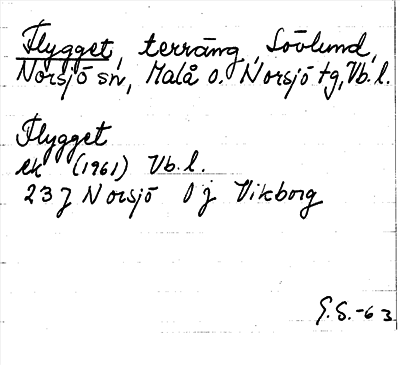 Flygget, terräng, Lövlund,
Norsjö sn, Malå o. Norsjö tg, Vb.l.
Flygget
ek (1961) Vb.l.
23 J Norsjö 0 j Vikborg
G.S.-63